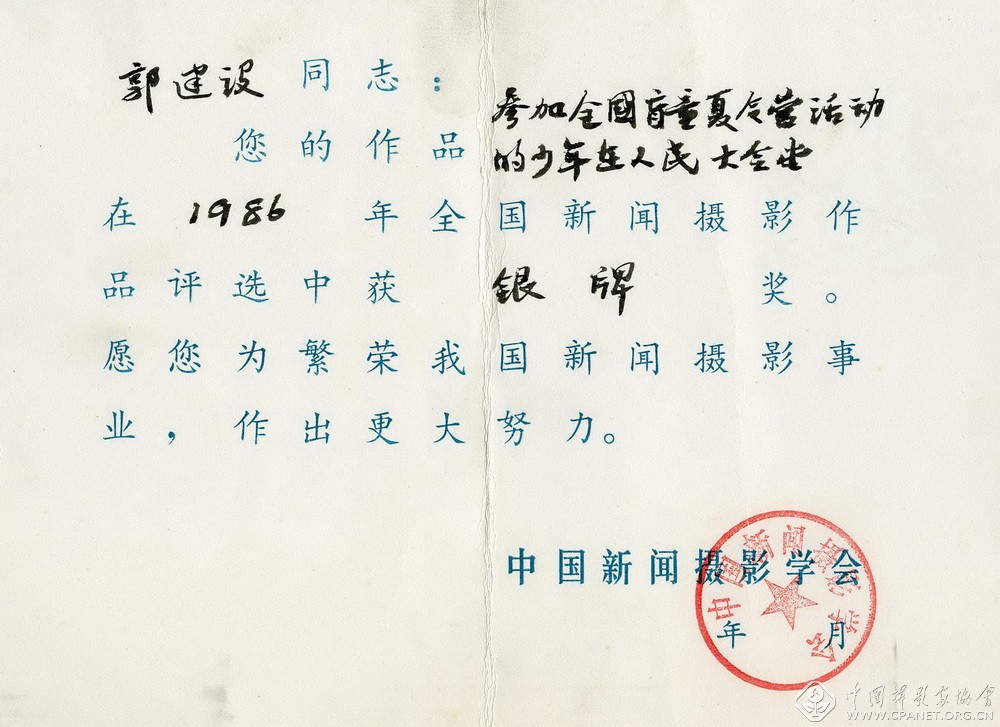 郭建设同志：
您的作品 参加全國盲童夏令营活动
的少年在人民大会堂
在 1986 年全国新闻摄影作
品评选中获 银牌 奖。
愿您为繁荣我国新闻摄影事
业，作出更大努力。
中国新闻摄影学会
年 月
中国新闻摄影学会
中国摄影家协会
WWW.CPANET.ORG.CN